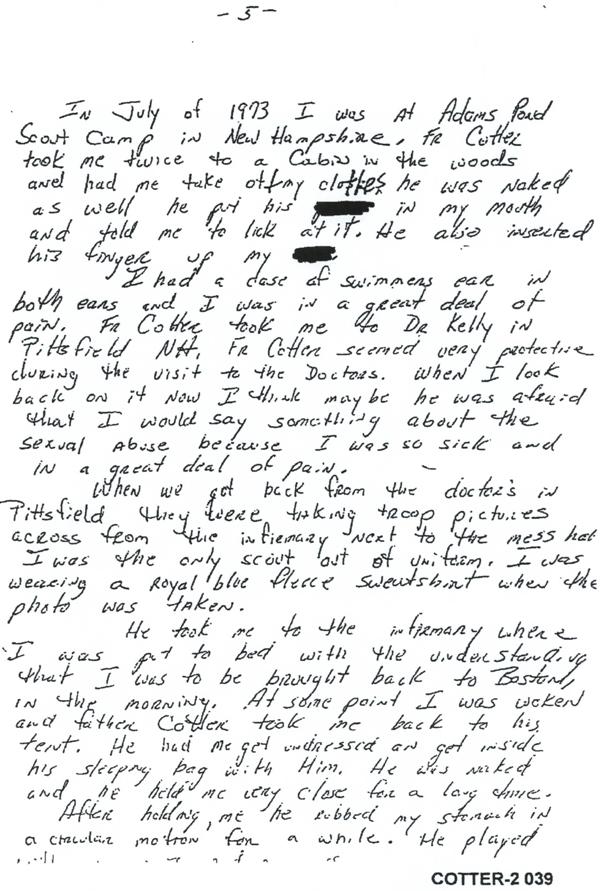 - 5 -
In July of 1973 I was at Adams Pond
Scout Camp in New Hampshire. Fr Cotter
took me twice to a Cabin in the woods
and had me take off my clothes he was naked
as well he put his in my mouth
and told me to lick at it. He also inserted
his finger up my
I had a case of swimmers ear in
both ears and I was in a great deal of
pain. Fr Cotter took me to Dr Kelly in
Pittsfield NH. Fr Cotter seemed very protective
during the visit to the Doctors. When I look
back on it now I think maybe he was afraid
that I would say something about the
sexual abuse because I was so sick and
in a great deal of pain.
When we got back from the doctor's in
Pittsfield they were taking troop pictures
across from the infirmary next to the mess hall
I was the only scout out of uniform. I was
wearing a royal blue fleece sweatshirt when the
photo was taken.
He took me to the infirmary where
I was put to bed with the understanding
that I was to be brought back to Boston,
in the morning. At some point I was woken
and father Cotter took me back to his
tent. He had me get undressed an get inside
his sleeping bag with Him. He was naked
and he held me very close for a long time.
After holding me he rubbed my stomach in
a circular motion for a while. He played
COTTER-2 039